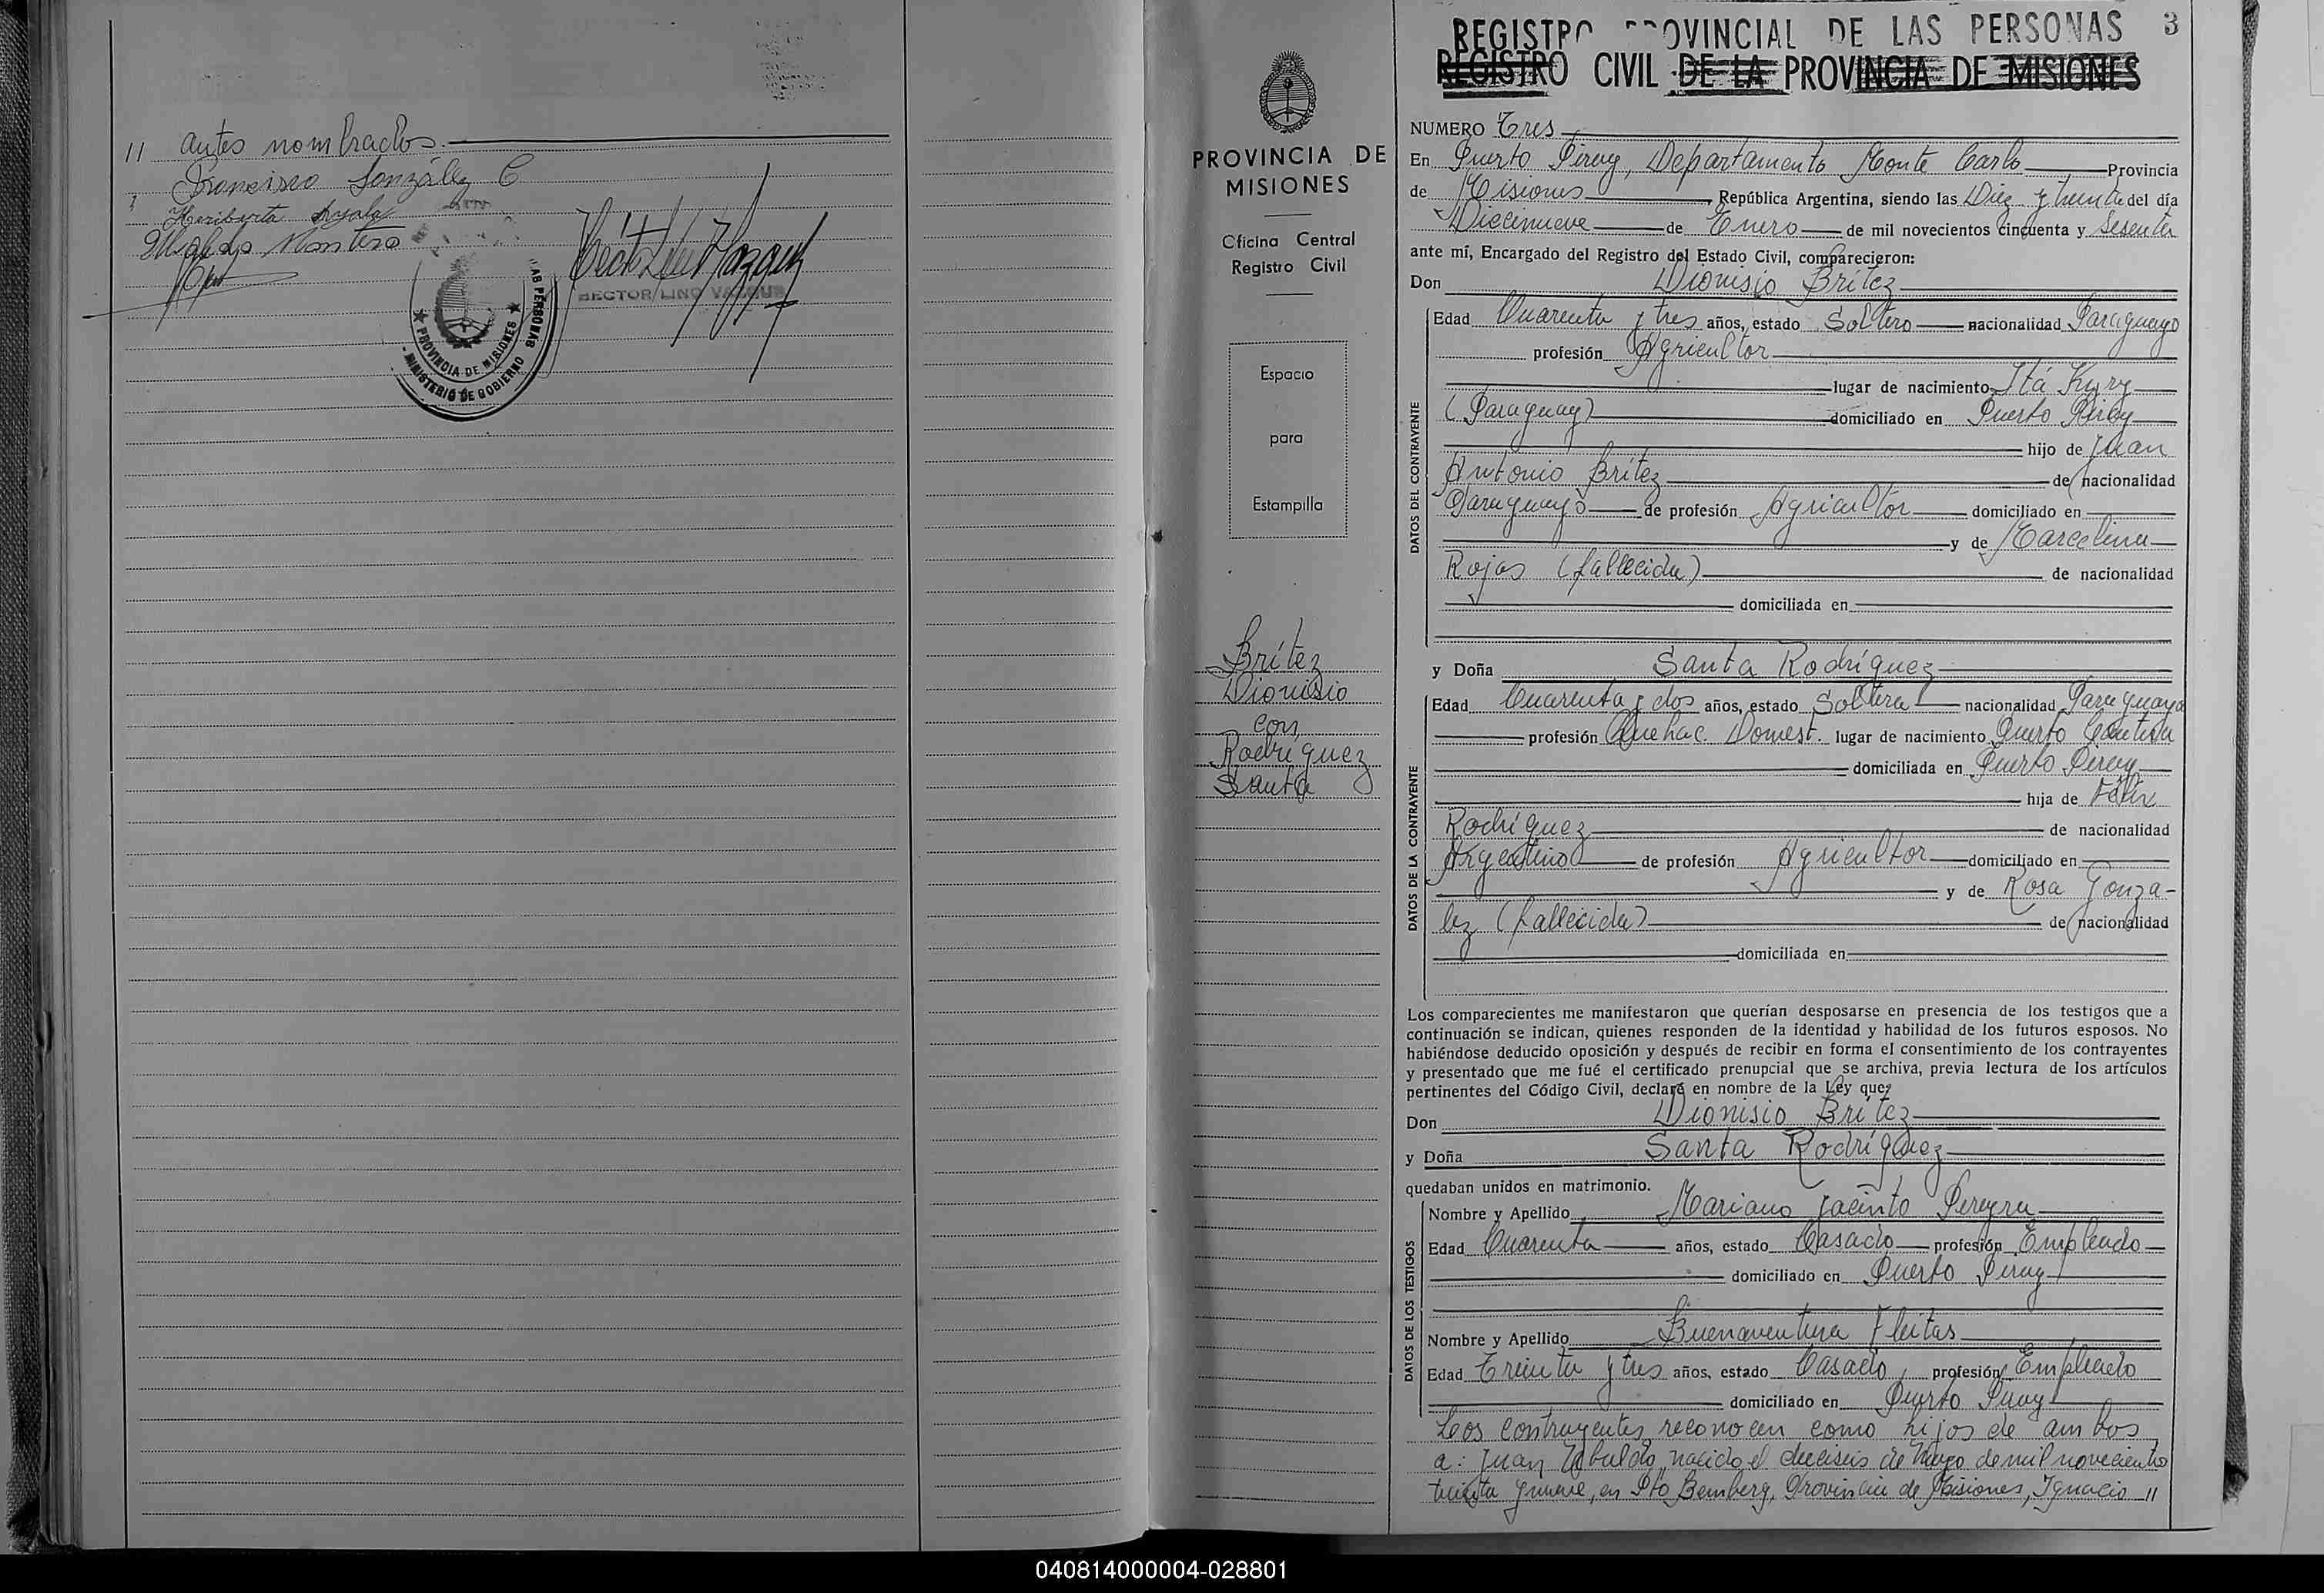 11 antes nombrados.
Francisco González C
Heriberta Ayala
HECTOR LINO VAZQUEZ
PROVINCIA DE MISIONES
MINISTERIO DE GOBIERNO
PROVINCIA DE
MISIONES
Oficina Central
Registro Civil
Espacio
para
Estampilla
Brítez
Dionisio
con
Rodríguez
Santa
REGISTRO PROVINCIAL DE LAS PERSONAS 3
REGISTRO CIVIL DE LA PROVINCIA DE MISIONES
NUMERO Tres
En Puerto Piray, Departamento Monte Carlo Provincia
de Misiones, República Argentina, siendo las Diez y treinta del día
Diecinueve de Enero de mil novecientos cincuenta y Sesenta
ante mí, Encargado del Registro del Estado Civil, comparecieron:
Don Dionisio Brítez
Edad Cuarenta y tres años, estado Soltero nacionalidad Paraguayo
profesión Agricultor
lugar de nacimiento Itá Kyry
(Paraguay) domiciliado en Puerto Piray
hijo de Juan
Antonio Brítez de nacionalidad
Paraguayo de profesión Agricultor domiciliado en
y de Marcelina
Rojas (fallecida) de nacionalidad
domiciliada en
DATOS DEL CONTRAYENTE
y Doña Santa Rodríguez
Edad Cuarenta y dos años, estado Soltera nacionalidad Paraguaya
profesión Quehac. Domest. lugar de nacimiento Puerto
domiciliada en Puerto Piray
hija de Félix
Rodríguez de nacionalidad
Argentino de profesión Agricultor domiciliado en
y de Rosa Gonza-
lez (fallecida) de nacionalidad
domiciliada en
DATOS DE LA CONTRAYENTE
Los comparecientes me manifestaron que querían desposarse en presencia de los testigos que a
continuación se indican, quienes responden de la identidad y habilidad de los futuros esposos. No
habiéndose deducido oposición y después de recibir en forma el consentimiento de los contrayentes
y presentado que me fué el certificado prenupcial que se archiva, previa lectura de los artículos
pertinentes del Código Civil, declaré en nombre de la Ley que:
Don Dionisio Brítez
y Doña Santa Rodríguez
quedaban unidos en matrimonio.
Nombre y Apellido Mariano Jacinto Pereyra
Edad Cuarenta años, estado Casado profesión Empleado
domiciliado en Puerto Piray
Nombre y Apellido Buenaventura Fleitas
Edad Treinta y tres años, estado Casado profesión Empleado
domiciliado en Puerto Piray
DATOS DE LOS TESTIGOS
Los contrayentes reconocen como hijos de ambos
a: Juan Ubaldo, nacido el dieciseis de Mayo de mil novecientos
treinta y nueve, en Pto Bemberg, Provincia de Misiones, Ignacio 11
040814000004-028801